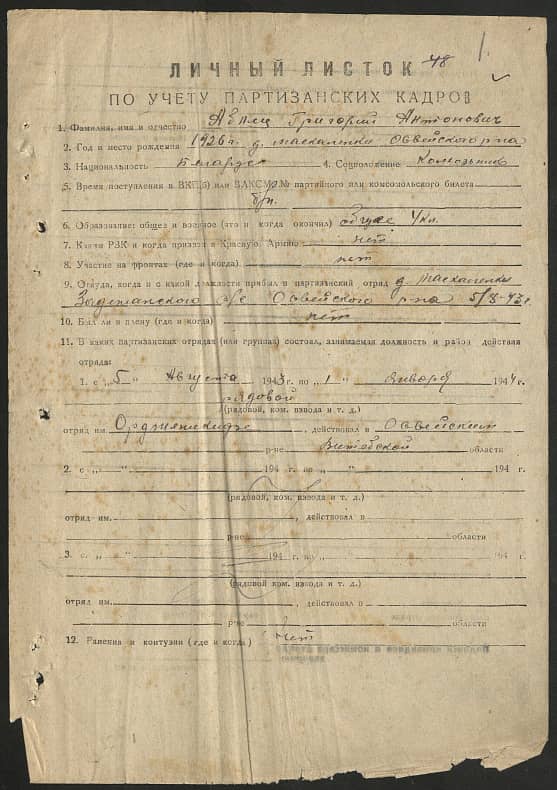 48 1.
ЛИЧНЫЙ ЛИСТОК
ПО УЧЕТУ ПАРТИЗАНСКИХ КАДРОВ
1. Фамилия, имя и отчество Григорий Антонович
2. Год и место рождения 1926 г. д. Москаленки Освейского р-на
3. Национальность Беларус 4. Соцположение Колхозник
5. Время поступления в ВКП(б) или ВЛКСМ и № партийного или комсомольского билета
б/п.
6. Образование: общее и военное (что и когда окончил) общее 4 кл.
7. Каким РВК и когда призван в Красную Армию нет
8. Участие на фронтах (где и когда) нет
9. Откуда, когда и с какой должности прибыл в партизанский отряд д. Москаленки
с/с Освейского р-на 5/8-43 г.
10. Был ли в плену (где и когда) нет
11. В каких партизанских отрядах (или группах) состоял, занимаемая должность и район действия
отряда:
1. с „5 “ Августа 1943 г. по „1 “ января 1944 г.
рядовой
(рядовой, ком. взвода и т. д.)
отряд им. Орджоникидзе, действовал в Освейский
р-не Витебской области
2. с „ “ 194 г. по „ “ 194 г.
(рядовой, ком. взвода и т. д.)
отряд им. , действовал в
р-не области
3. с „ “ 194 г. по „ “ 194 г.
(рядовой, ком. взвода и т. д.)
отряд им. , действовал в
р-не области
12. Ранения и контузии (где и когда) нет